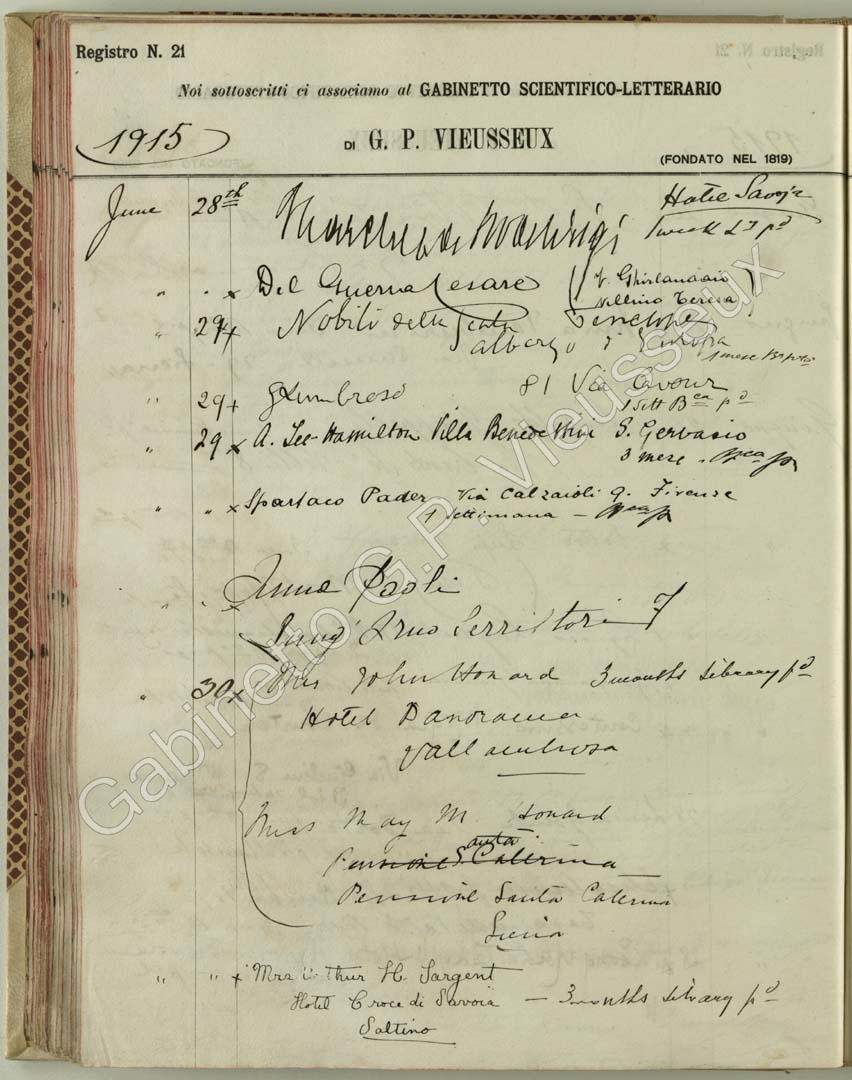 Registro N. 21
Noi sottoscritti ci associamo al GABINETTO SCIENTIFICO-LETTERARIO
1915
DI G. P. VIEUSSEUX
(FONDATO NEL 1819)
June 28th Hotel Savoja
1 week L 3 pd
" " x Del Guerra Cesare (V. Ghirlandaio
Villino Teresa)
29 x Nobili della Scala
albergo d'Europa
1 mese
" 29 x 81 Via Cavour
1 Sett Bca pd
" 29 x A. Lee-Hamilton Villa Benedettini S. Gervasio
3 mese
" " x Spartaco Pader Via Calzaioli 9. Firenze
1 Settimana
" " x Anna Paoli
Lung' Arno Serristori 7
" 30 x Mrs John Howard 3 months Library pd
Hotel Panorama
Vallombrosa
Miss May M. Howard
Pensione S. Caterina
Pensione Santa Caterina
Siena
" " x Mrs Arthur H. Sargent
Hotel Croce di Savoia – 3 months Library pd
Saltino
Gabinetto G.P. Vieusseux